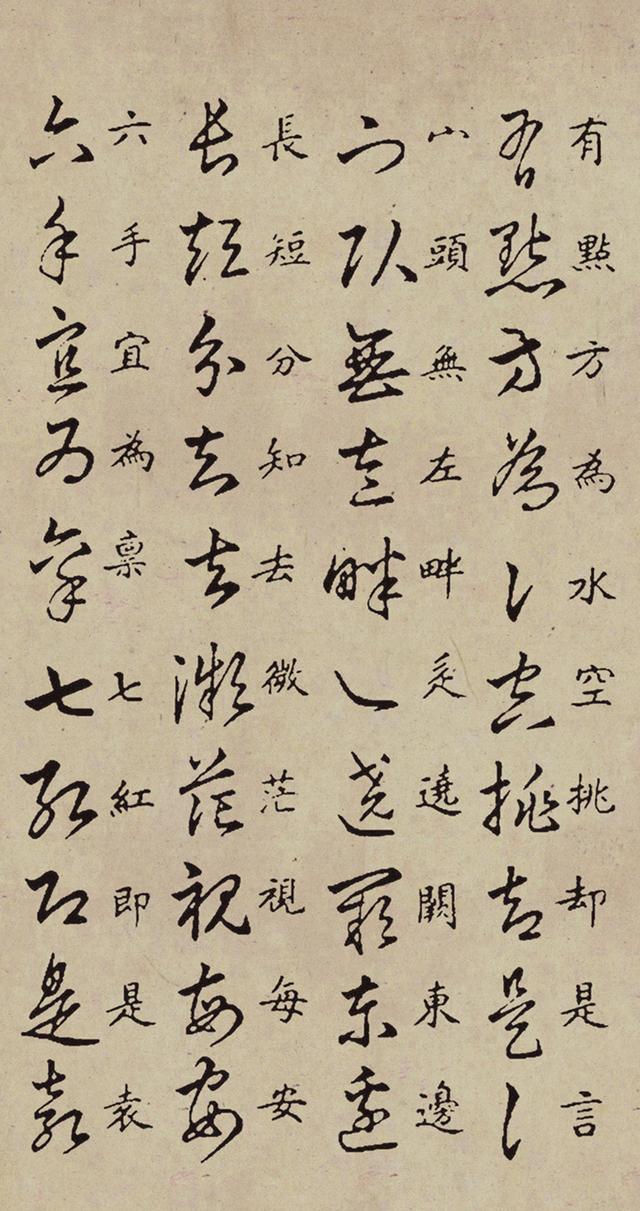 有點方為水空挑却是言
有點方為氵空挑却是訁
山頭無左畔辵遶闕東邊
山頭無左畔辶遶闕東邊
長短分知去微茫視每安
長短分知去微茫視每安
六手宜為稟七紅即是袁
六手宜為稟七紅即是袁